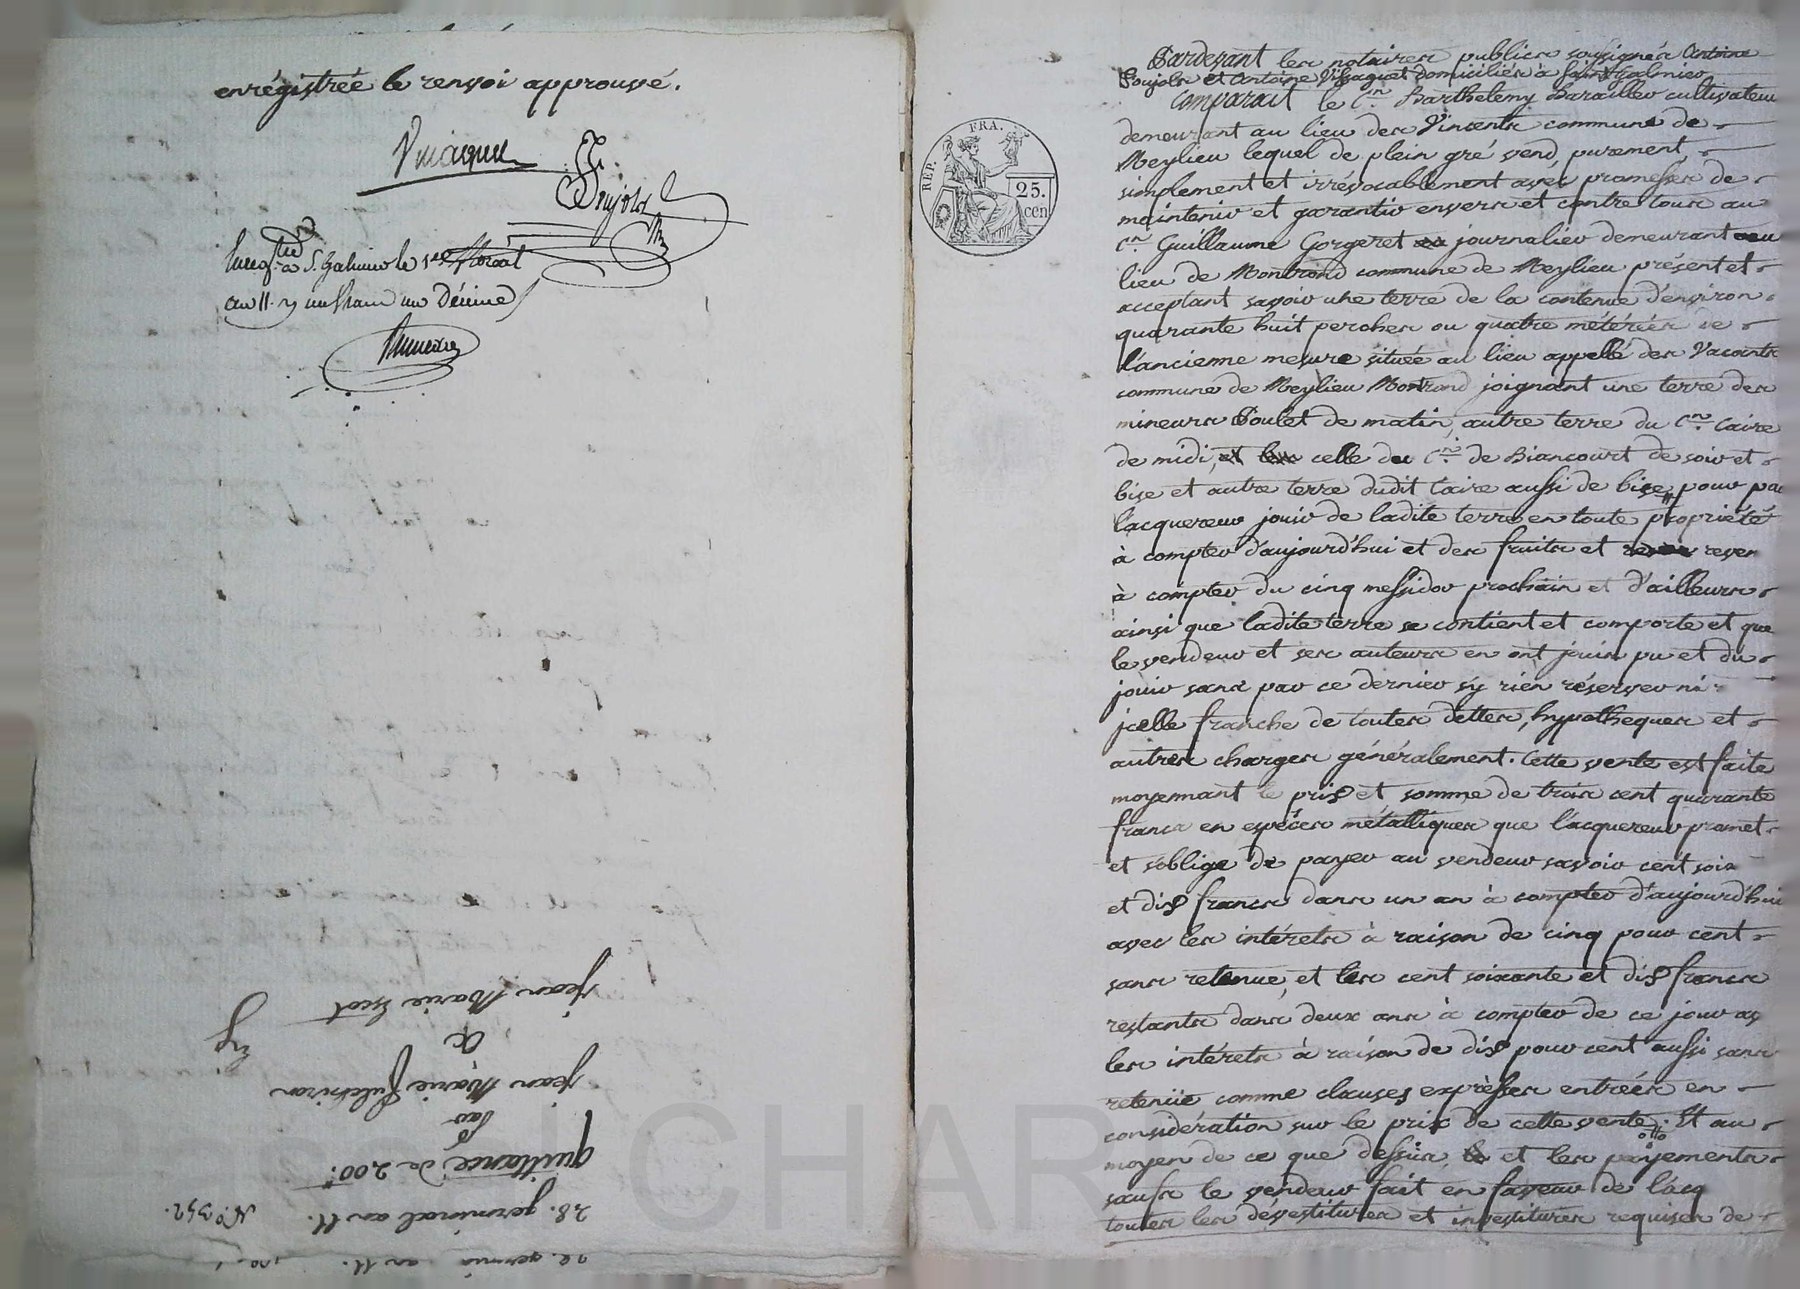 enrégistrée le renvoi approuvé.
Pujolas
a St. Galmier le 1er floreal
an 11. un franc un Décime
jean Marie
&
jean Marie fulchiron
par
quittance de 200.
28. germinal an 11. N.º 352.
28. germi an 11.
REP. FRA.
25.
cen
Pardevant les notaires publics soussignés Antoine
Poujols et Antoine domiciliés à Saint Galmier
Comparait le Cen. Barthelemy Barailler cultivateur
demeurant au lieu des Vincents commune de
Meylieu lequel de plein gré vend purement
simplement et irrévocablement avec promesses de
maintenir et garantir envers et contre tous au
Cen Guillaume Gorgeret journalier demeurant au
lieu de Montrond commune de Meylieu présent et
acceptant savoir une terre de la contenue d'environ
quarante huit perches ou quatre métérées de
l'ancienne mesure située au lieu appellé des
commune de Meylieu Montrond joignant une terre des
mineurs Poulet de matin, autre terre du Cen. Caire
de midi, celle du Cen. de Biancourt de soir et
bise et autre terre dudit Caire aussi de bise, pour par
lacquereur jouir de ladite terre en toute propriété
à compter d'aujourd'hui et des fruits et reven
à compter du cinq messidor prochain et d'ailleurs
ainsi que ladite terre se contient et comporte et que
le vendeur et ses auteurs en ont jouis pu et du
jouir sans par ce dernier s'y rien réserver ni
jcelle franche de toutes dettes, hypotheques et
autres charges généralement. Cette vente est faite
moyennant le prix et somme de trois cent quarante
francs en espèces métalliques que l'acquereur promet
et s'oblige de payer au vendeur savoir cent soix
et dix francs dans un an à compter d'aujourd'hui
avec les intérets à raison de cinq pour cent
sans retenue, et les cent soixante et dix francs
restants dans deux ans à compter de ce jour av
les intérets à raison de dix pour cent aussi sans
retenüe comme clauses expresses entrées en
considération sur le prix de cette vente. Et au
moyen de ce que dessus, et les payements
saufs le vendeur fait en faveur de l'acq
toutes les dévestitures et investitures requises de
CHAR